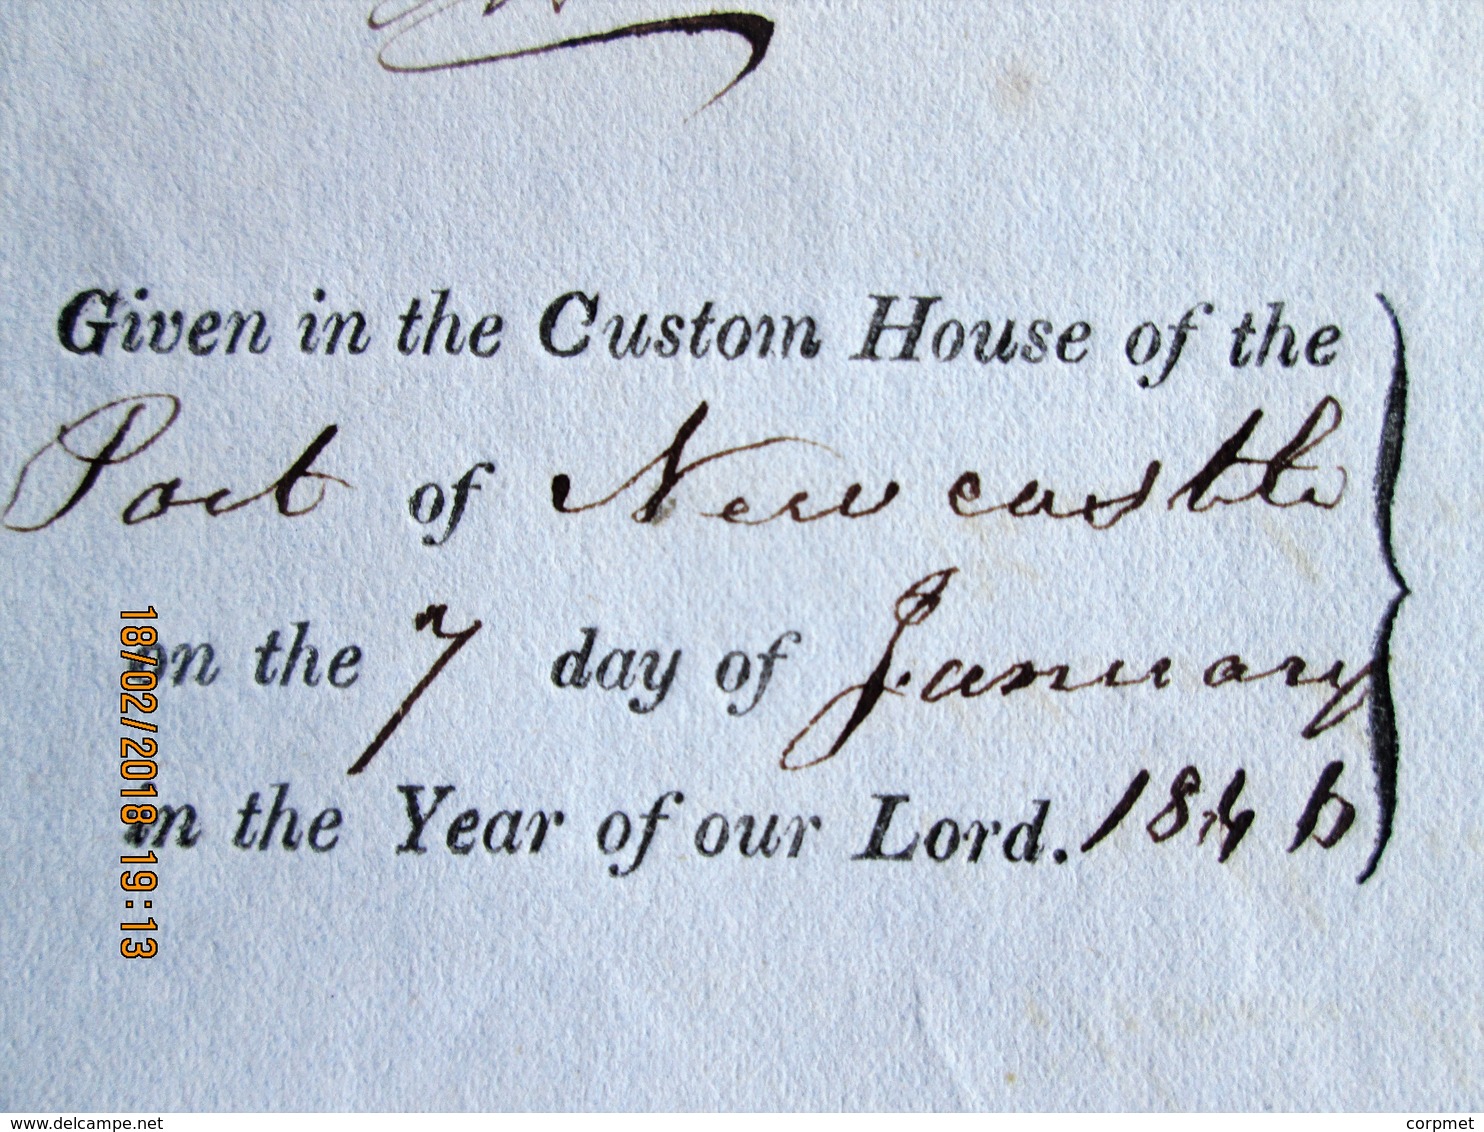 Given in the Custom House of the
Port of Newcastle
on the 7 day of January
in the Year of our Lord. 1846
18/02/2018 19:13
www.delcampe.net
corpmet